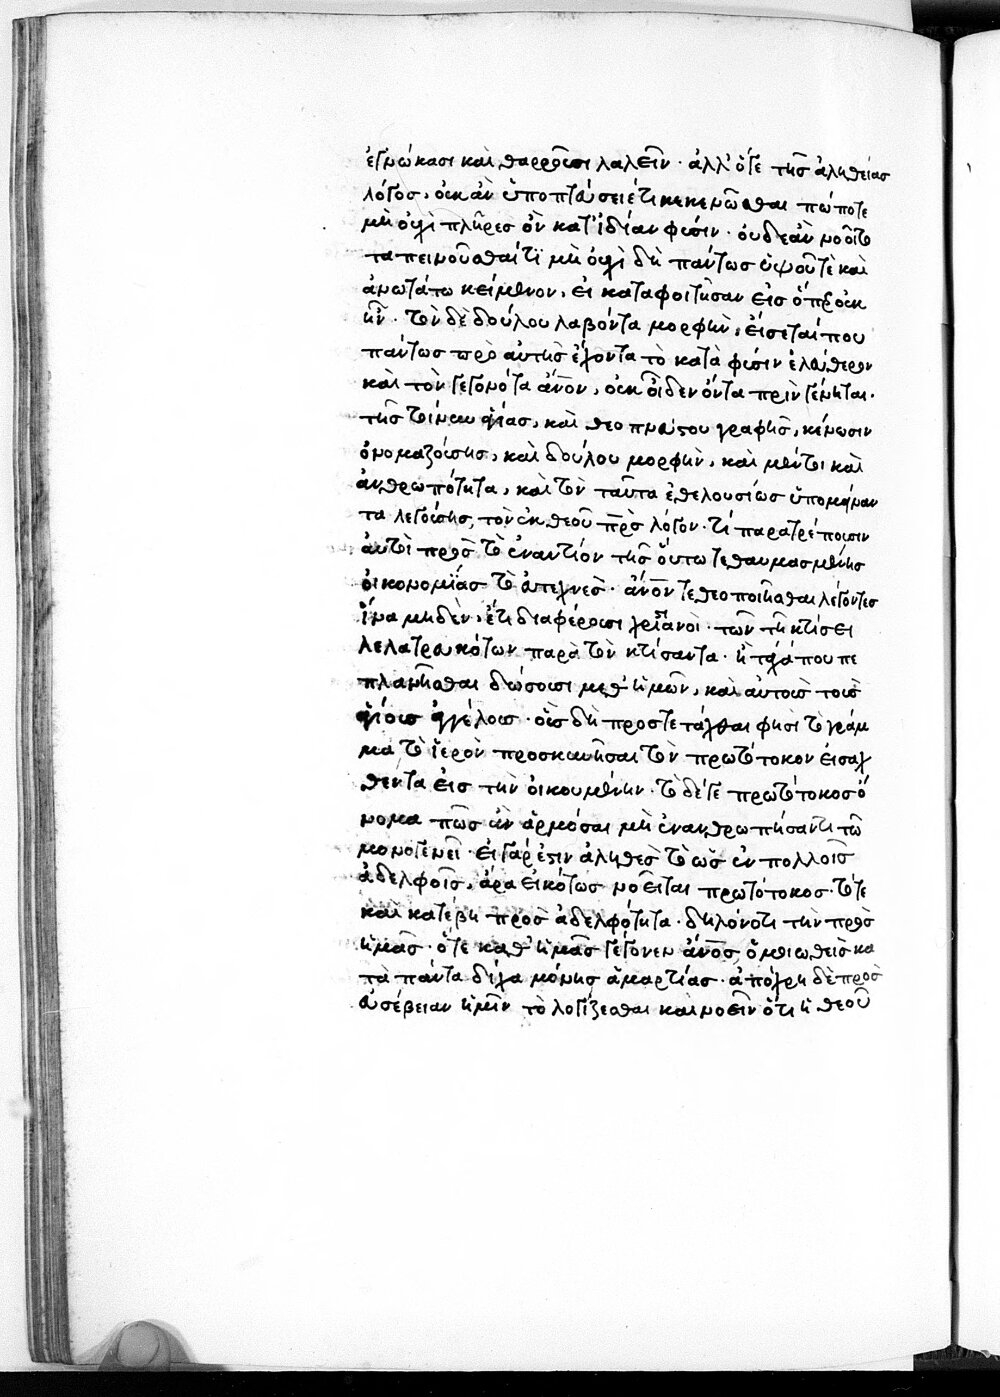 ἐγνώκασι καὶ θαρροῦσι λαλεῖν · ἀλλ' ὅγε τῆς ἀληθείας
λόγος, οὐκ ἂν ὑποπτεύσειέ τι κεκενῶσθαι πώποτε
μὴ οὐχὶ πλῆρες ὂν κατ' ἰδίαν φύσιν · οὐδ' ἐὰν νοοῖτο
ταπεινοῦσθαί τϊ μὴ οὐχὶ δὴ πάντως ὑψοῦ τὲ καὶ
ἀνωτάτω κείμενον, εἰ καταφοιτῆσαν εἰς ὅπερ οὐκ
ἦν · τὸν δὲ δούλου λαβόντα μορφὴν, εἴσεταί που
πάντως πρὸ αὐτῆς ἔχοντα τὸ κατὰ φύσιν ἐλεύθερον
καὶ τὸν γεγονότα ἄνον, οὐκ οἶδεν ὄντα πρὶν γένηται ·
τῆς τοίνυν ἁγίας, καὶ θεοπνεύστου γραφῆς, κένωσιν
ὀνομαζούσης, καὶ δούλου μορφὴν, καὶ μέντοι καὶ
ἀνθρωπότητα, καὶ τὸν ταῦτα ἐθελουσίως ὑπομείναν
τα λεγούσης, τὸν ἐκ θεοῦ πρς λόγον · τί παρατρέπουσιν
αὐτοὶ πρὸς τὸ ἐναντίον τῆς οὕτω τεθαυμασμένης
οἰκονομίας τὸ ἀτεχνὲς · ἄνον τεθεοποιῆσθαι λέγοντες
ἵνα μηδὲν ἔτι διαφέρωσι χριστιανοὶ · τῶν τῇ κτίσει
λελατρευκότων παρὰ τὸν κτίσαντα · ἢ τάχά που πε
πλανῆσθαι δώσουσι μεθ' ἡμῶν, καὶ αὐτοὺς τοὺς
ἁγίους ἀγγέλους · οἷς δὴ προστετάχθαι φησὶ τὸ γράμ
μα τὸ ἱερὸν προσκυνῆσαι τὸν πρωτότοκον εἰσαχ
θέντα εἰς τὴν οἰκουμένην · τὸ δέ γε πρωτότοκος ὄ
νομα πῶς ἂν ἁρμόσαι μὴ ἐνανθρωπήσαντι τῶ
μονογενεῖ · εἰ γάρ ἐστιν ἀληθὲς τὸ ὡς ἐν πολλοῖς
ἀδελφοῖς, ἆρα εἰκότως νοεῖται πρωτότοκος · τότε
καὶ κατέβη πρὸς ἀδελφότητα · δηλονότι τὴν πρὸς
ἡμᾶς · ὅτε καθ' ἡμᾶς γέγονεν ἄνος, ὁμοιωθεὶς κα
τὰ πάντα δίχα μόνης ἁμαρτίας · ἀπόχρη δὲ πρὸς
εὐσέβειαν ἡμῖν τὸ λογίζεσθαι καὶ νοεῖν ὅτι ἡ θεοῦ